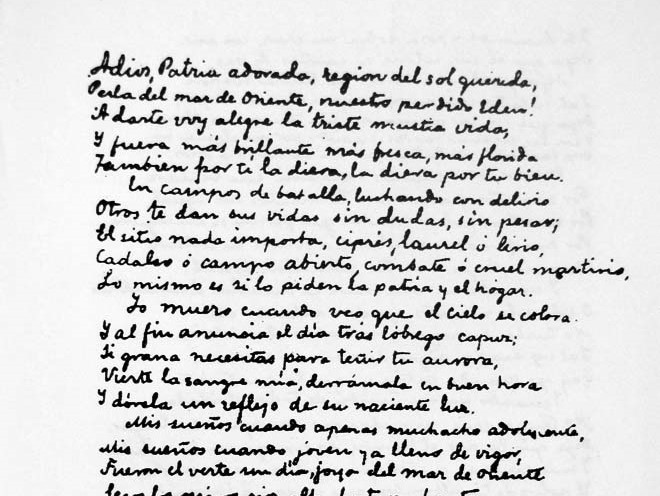 Adios, Patria adorada, region del sol querida,
Perla del mar de Oriente, nuestro perdido Eden!
A darte voy alegre la triste mustia vida,
Y fuera más brillante más fresca, más florida
Tambien por tí la diera, la diera por tu bien.
En campos de batalla, luchando con delirio
Otros te dan sus vidas sin dudas, sin pesar;
El sitio nada importa, ciprés, laurel ó lirio,
Cadalso ó campo abierto, combate ó cruel martirio,
Lo mismo es si lo piden la patria y el hogar.
Yo muero cuando veo que el cielo se colora
Y al fin anuncia el día trás lóbrego capuz;
Si grana necesitas para teñir tu aurora,
Vierte la sangre mía, derrámala en buen hora
Y dórela un reflejo de su naciente luz.
Mis sueños cuando apenas muchacho adolescente,
Mis sueños cuando joven ya lleno de vigor,
Fueron el verte un día, joya del mar de oriente